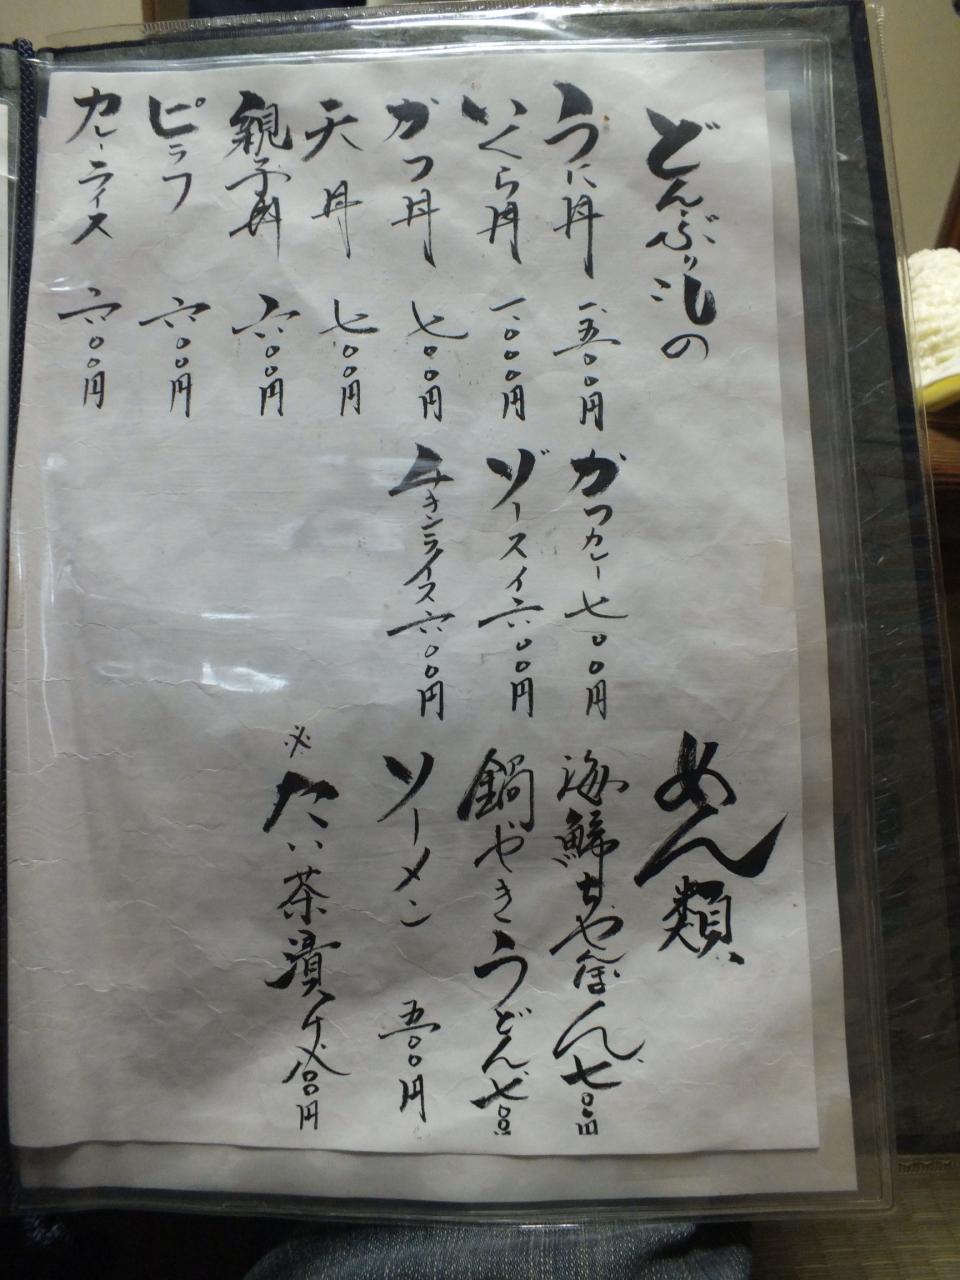 どんぶりもの
うに丼 一、五〇〇円
いくら丼 一、〇〇〇円
かつ丼 七〇〇円
天丼 七〇〇円
親子丼 六〇〇円
ピラフ 六〇〇円
カレーライス 六〇〇円
カツカレー 七〇〇円
ゾースイ 六〇〇円
チキンライス 六〇〇円
めん類
海鮮ちゃんぽん 七〇〇円
鍋やきうどん 七〇〇
ソーメン 五〇〇円
※たい茶漬け 〇〇円